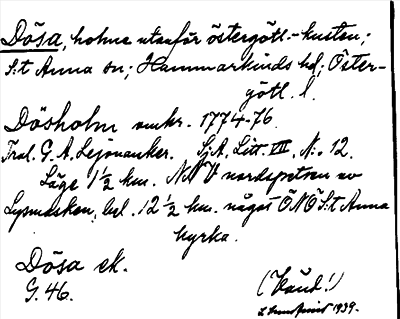 Dösa, holme utanför östergötl.-kusten;
S:t Anna sn; Hammarkinds hd; Öster-
götl. l.
Dösholm omkr. 1774-76.
Tral. G. A. Lejonancker. Sj.A. Litt. VIII. N:o 12.
Läge 1 1/2 km. NNV nordspetsen av
Lysmasken, bel. 12 1/2 km. något ÖNÖ S:t Anna
kyrka.
Dösa ek.
G. 46.
(Vänd!)
1939.